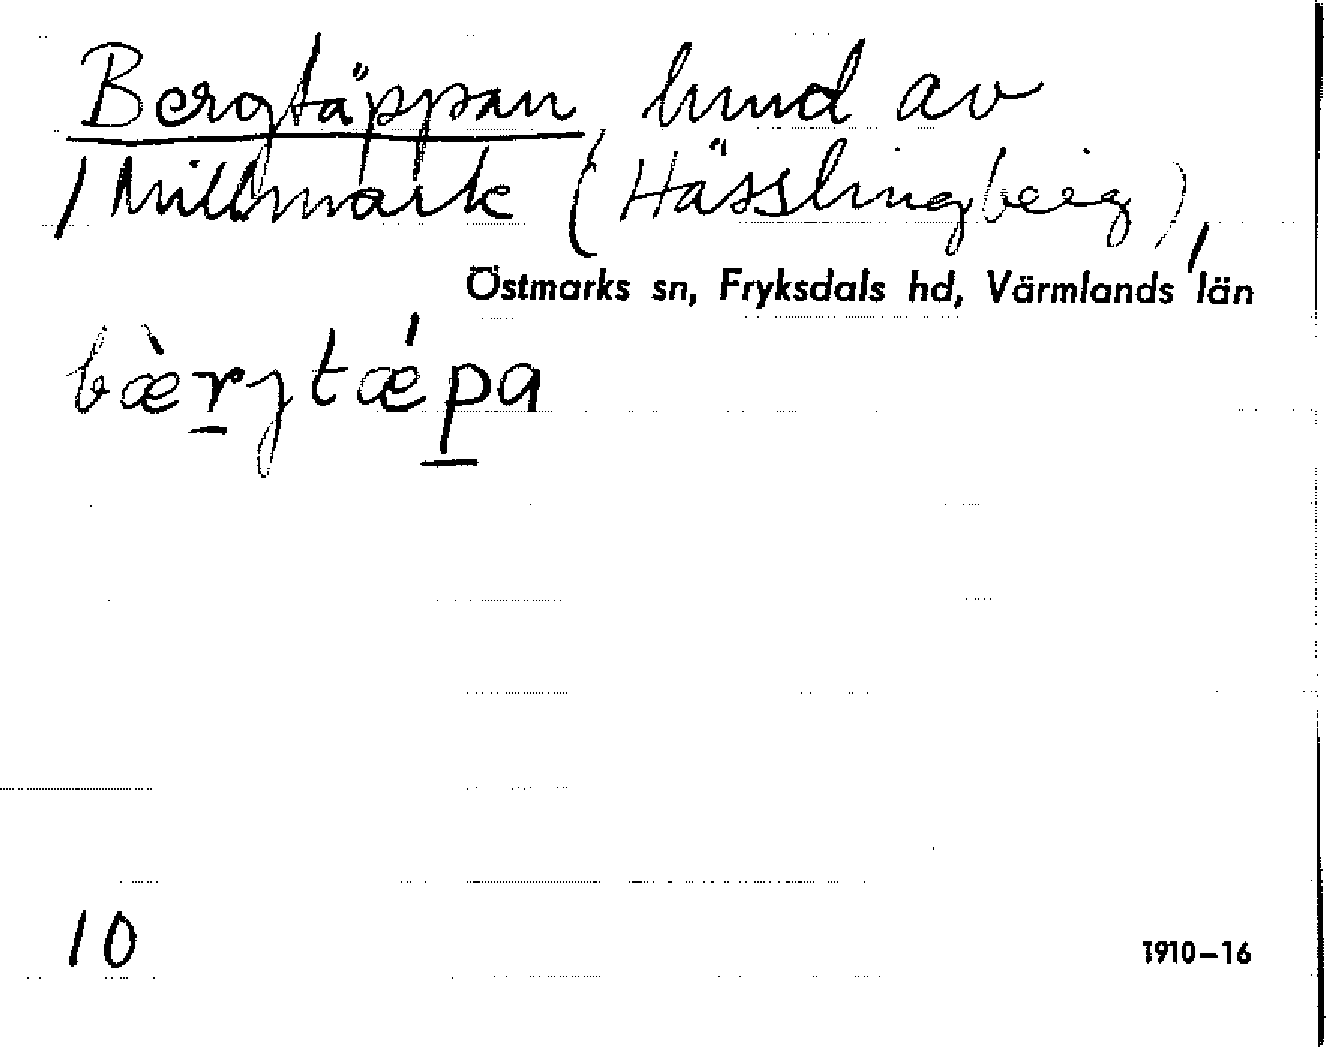 Bergtäppan, lund av
/ Millmark (Hässlingberg),
Östmarks sn, Fryksdals hd, Värmlands län
bæ̀rgtǽpa
10
1910–16